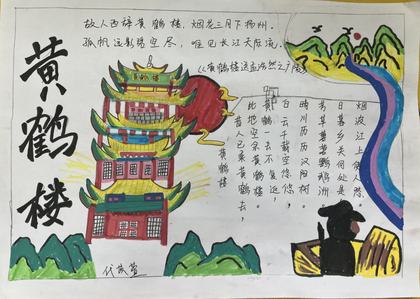 故人西辞黄鹤楼，烟花三月下扬州。
孤帆远影碧空尽，唯见长江天际流。
黄鹤楼
黄鹤楼
黄鹤楼
昔人已乘黄鹤去，
此地空余黄鹤楼。
黄鹤一去不复返，
白云千载空悠悠，
晴川历历汉阳树，
芳草萋萋鹦鹉洲。
日暮乡关何处是，
烟波江上使人愁。